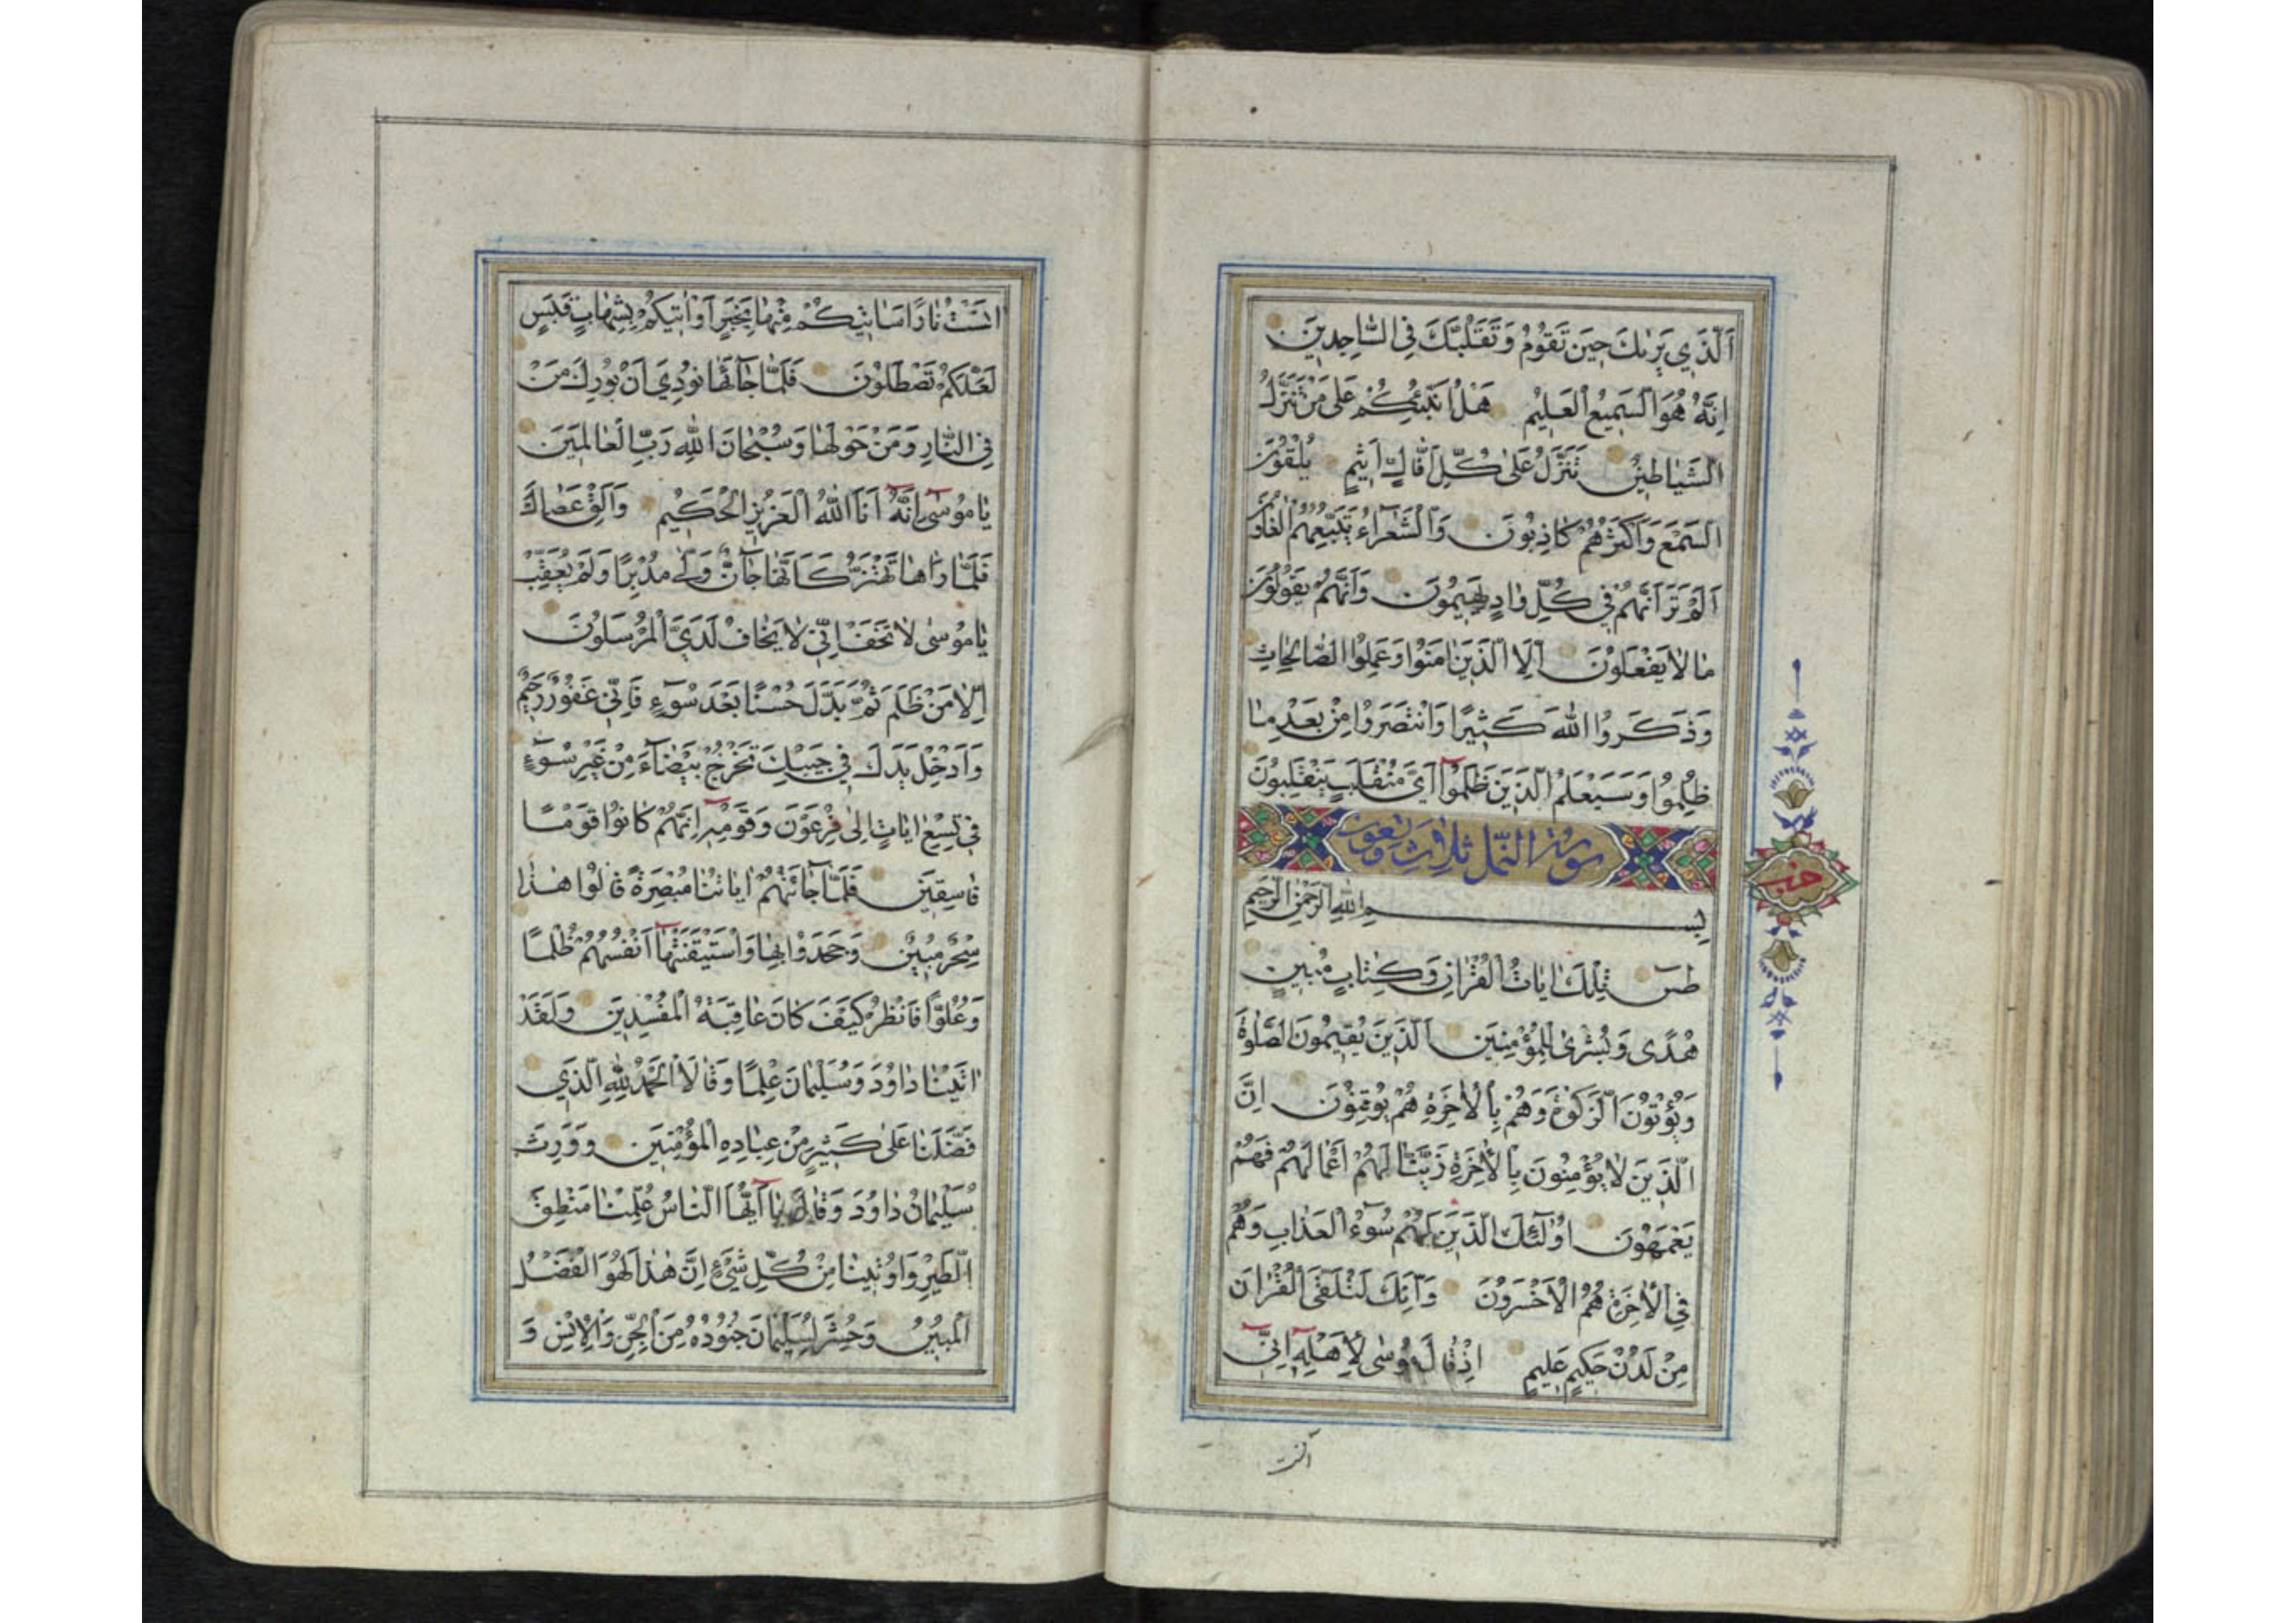 اَلَّذِي يَرٰيكَ حِينَ تَقُومُ وَتَقَلُّبَكَ فِي السَّاجِدِينَ
اِنَّهُ هُوَ السَّمِيعُ الْعَلِيمُ هَلْ اُنَبِّئُكُمْ عَلٰى مَنْ تَنَزَّلُ
الشَّيَاطِينُ تَنَزَّلُ عَلٰى كُلِّ اَفَّاكٍ اَثِيمٍ يُلْقُونَ
السَّمْعَ وَاَكْثَرُهُمْ كَاذِبُونَ وَالشُّعَرَاءُ يَتَّبِعُهُمُ الْغَاوُنَ
اَلَمْ تَرَ اَنَّهُمْ فِي كُلِّ وَادٍ يَهِيمُونَ وَاَنَّهُمْ يَقُولُونَ
مَا لَا يَفْعَلُونَ اِلَّا الَّذِينَ اٰمَنُوا وَعَمِلُوا الصَّالِحَاتِ
وَذَكَرُوا اللّٰهَ كَثِيرًا وَانْتَصَرُوا مِنْ بَعْدِ مَا
ظُلِمُوا وَسَيَعْلَمُ الَّذِينَ ظَلَمُوا اَيَّ مُنْقَلَبٍ يَنْقَلِبُونَ
سورة النمل ثلاث وتسعون
حزب
بِسْمِ اللّٰهِ الرَّحْمٰنِ الرَّحِيمِ
طٰسٓ تِلْكَ اٰيَاتُ الْقُرْاٰنِ وَكِتَابٍ مُبِينٍ
هُدًى وَبُشْرٰى لِلْمُؤْمِنِينَ اَلَّذِينَ يُقِيمُونَ الصَّلٰوةَ
وَيُؤْتُونَ الزَّكٰوةَ وَهُمْ بِالْاٰخِرَةِ هُمْ يُوقِنُونَ اِنَّ
الَّذِينَ لَا يُؤْمِنُونَ بِالْاٰخِرَةِ زَيَّنَّا لَهُمْ اَعْمَالَهُمْ فَهُمْ
يَعْمَهُونَ اُولٰٓئِكَ الَّذِينَ لَهُمْ سُوٓءُ الْعَذَابِ وَهُمْ
فِي الْاٰخِرَةِ هُمُ الْاَخْسَرُونَ وَاِنَّكَ لَتُلَقَّى الْقُرْاٰنَ
مِنْ لَدُنْ حَكِيمٍ عَلِيمٍ اِذْ قَالَ مُوسٰى لِاَهْلِهِ اِنِّي
انست
اٰنَسْتُ نَارًا سَاٰتِيكُمْ مِنْهَا بِخَبَرٍ اَوْ اٰتِيكُمْ بِشِهَابٍ قَبَسٍ
لَعَلَّكُمْ تَصْطَلُونَ فَلَمَّا جَآءَهَا نُودِيَ اَنْ بُورِكَ مَنْ
فِي النَّارِ وَمَنْ حَوْلَهَا وَسُبْحَانَ اللّٰهِ رَبِّ الْعَالَمِينَ
يَا مُوسٰى اِنَّهُ اَنَا اللّٰهُ الْعَزِيزُ الْحَكِيمُ وَاَلْقِ عَصَاكَ
فَلَمَّا رَاٰهَا تَهْتَزُّ كَاَنَّهَا جَآنٌّ وَلّٰى مُدْبِرًا وَلَمْ يُعَقِّبْ
يَا مُوسٰى لَا تَخَفْ اِنِّي لَا يَخَافُ لَدَيَّ الْمُرْسَلُونَ
اِلَّا مَنْ ظَلَمَ ثُمَّ بَدَّلَ حُسْنًا بَعْدَ سُوٓءٍ فَاِنِّي غَفُورٌ رَحِيمٌ
وَاَدْخِلْ يَدَكَ فِي جَيْبِكَ تَخْرُجْ بَيْضَآءَ مِنْ غَيْرِ سُوٓءٍ
فِي تِسْعِ اٰيَاتٍ اِلٰى فِرْعَوْنَ وَقَوْمِهِ اِنَّهُمْ كَانُوا قَوْمًا
فَاسِقِينَ فَلَمَّا جَآءَتْهُمْ اٰيَاتُنَا مُبْصِرَةً قَالُوا هٰذَا
سِحْرٌ مُبِينٌ وَجَحَدُوا بِهَا وَاسْتَيْقَنَتْهَا اَنْفُسُهُمْ ظُلْمًا
وَعُلُوًّا فَانْظُرْ كَيْفَ كَانَ عَاقِبَةُ الْمُفْسِدِينَ وَلَقَدْ
اٰتَيْنَا دَاوُدَ وَسُلَيْمَانَ عِلْمًا وَقَالَا الْحَمْدُ لِلّٰهِ الَّذِي
فَضَّلَنَا عَلٰى كَثِيرٍ مِنْ عِبَادِهِ الْمُؤْمِنِينَ وَوَرِثَ
سُلَيْمَانُ دَاوُدَ وَقَالَ يَا اَيُّهَا النَّاسُ عُلِّمْنَا مَنْطِقَ
الطَّيْرِ وَاُوتِينَا مِنْ كُلِّ شَيْءٍ اِنَّ هٰذَا لَهُوَ الْفَضْلُ
الْمُبِينُ وَحُشِرَ لِسُلَيْمَانَ جُنُودُهُ مِنَ الْجِنِّ وَالْاِنْسِ وَ